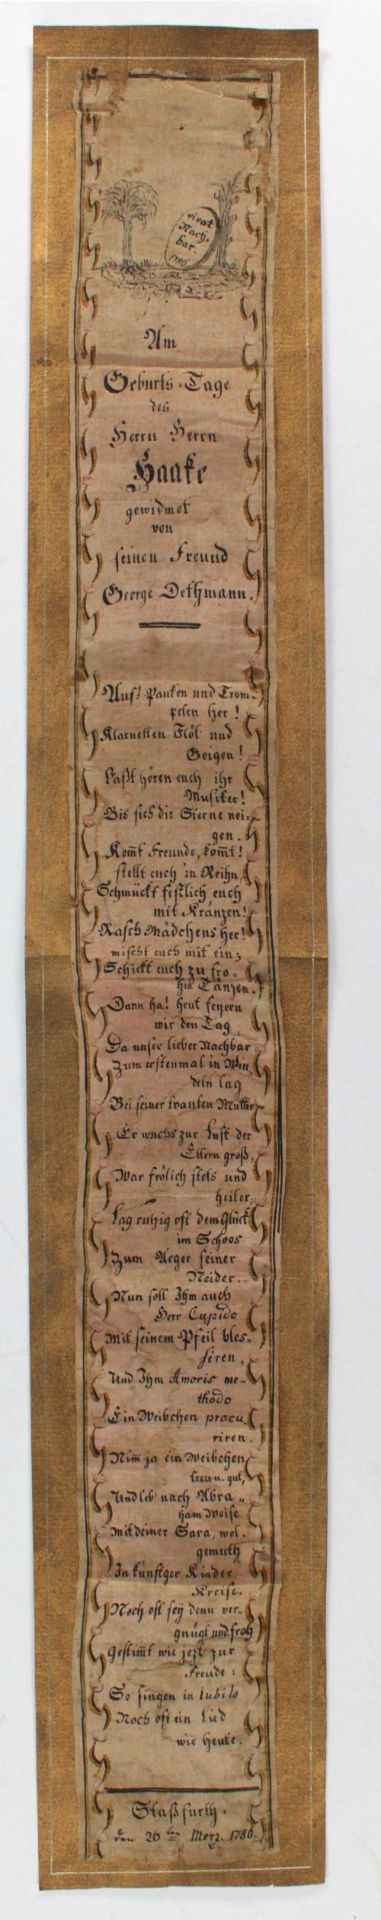 vivat
Nach-
bar.
Am
Geburts-Tage
des
Herrn Herrn
Haake
gewidmet
von
seinen Freund
George Dethmann.
Auf! Pauken und Trom-
peten her!
Klarnetten Flöt und
Geigen!
Laßt hören euch ihr
Musiker!
Bis sich die Sterne nei-
gen.
Kom̄t Freunde, kom̄t!
stellt euch in Reihn,
Schmückt festlich euch
mit Kränzen!
Rasch Mädchens her!
mischt euch mit ein,
Schickt euch zu fro-
hen Tänzen.
Dann ha! heut feyern
wir den Tag,
Da unser lieber Nachbar
zum erstenmal in Win
deln lag
Bei seiner trauten Mutter
Er wuchs zur Lust der
Eltern groß,
War frölich stets und
heiter,
Lag ruhig oft dem Glück
im Schoos
Zum Aeger seiner
Neider.
Nun soll Ihm auch
Herr Cupido
Mit seinem Pfeil bles-
siren,
Und Ihm Amoris me-
thodo
Ein Weibchen procu-
riren.
Nim̄ ja ein Weibchen
treu u. gut,
Und leb nach Abra-
ham Weise
Mit deiner Sara, wol-
gemuth
In künftger Kinder
Kreise.
Noch oft sey denn ver-
gnügt und froh
Gestim̄t wie jezt zur
Freude:
So singen in Iubilo
Noch oft ein Lied
wie heute.
Staßfurth.
den 26 ten Merz. 1786.